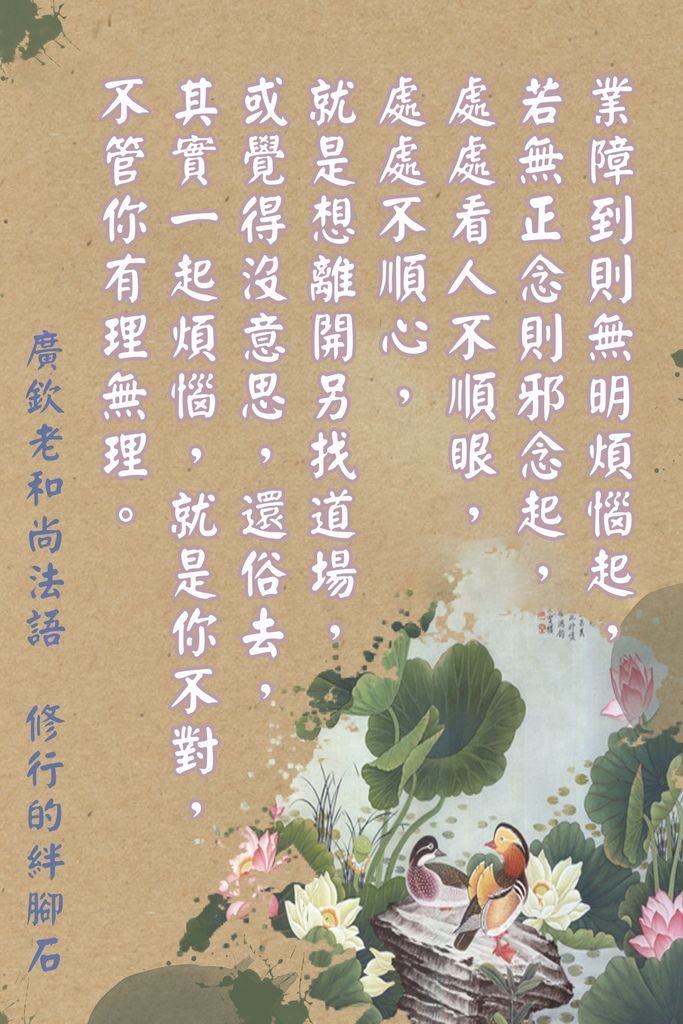 業障到則無明煩惱起，
若無正念則邪念起，
處處看人不順眼，
處處不順心，
就是想離開另找道場，
或覺得沒意思，還俗去，
其實一起煩惱，就是你不對，
不管你有理無理。
廣欽老和尚法語　修行的絆腳石